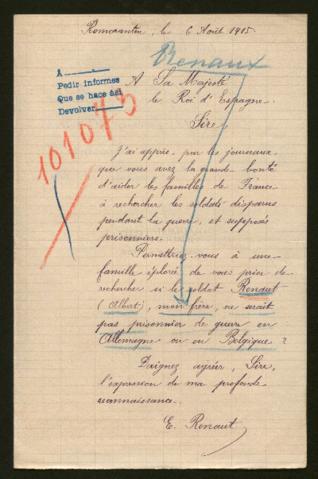 Romorantin, le 6 Août 1915
Renaux
A
Pedir informes
Que se hace así
Devolver
101075
A Sa Majesté
le Roi d'Espagne.
Sire,
J'ai appris, par les journaux
que vous avez la grande bonté
d'aider les familles de France
à rechercher les soldats disparus
pendant la guerre, et supposés
prisonniers.
Permettriez-vous à une
famille éplorée de vous prier de
rechercher si le soldat Renaut
(Albert), mon frère, ne serait
pas prisonnier de guerre en
Allemagne ou en Belgique ?
Daignez agréer, Sire,
l'expression de ma profonde
reconnaissance.
E. Renaut